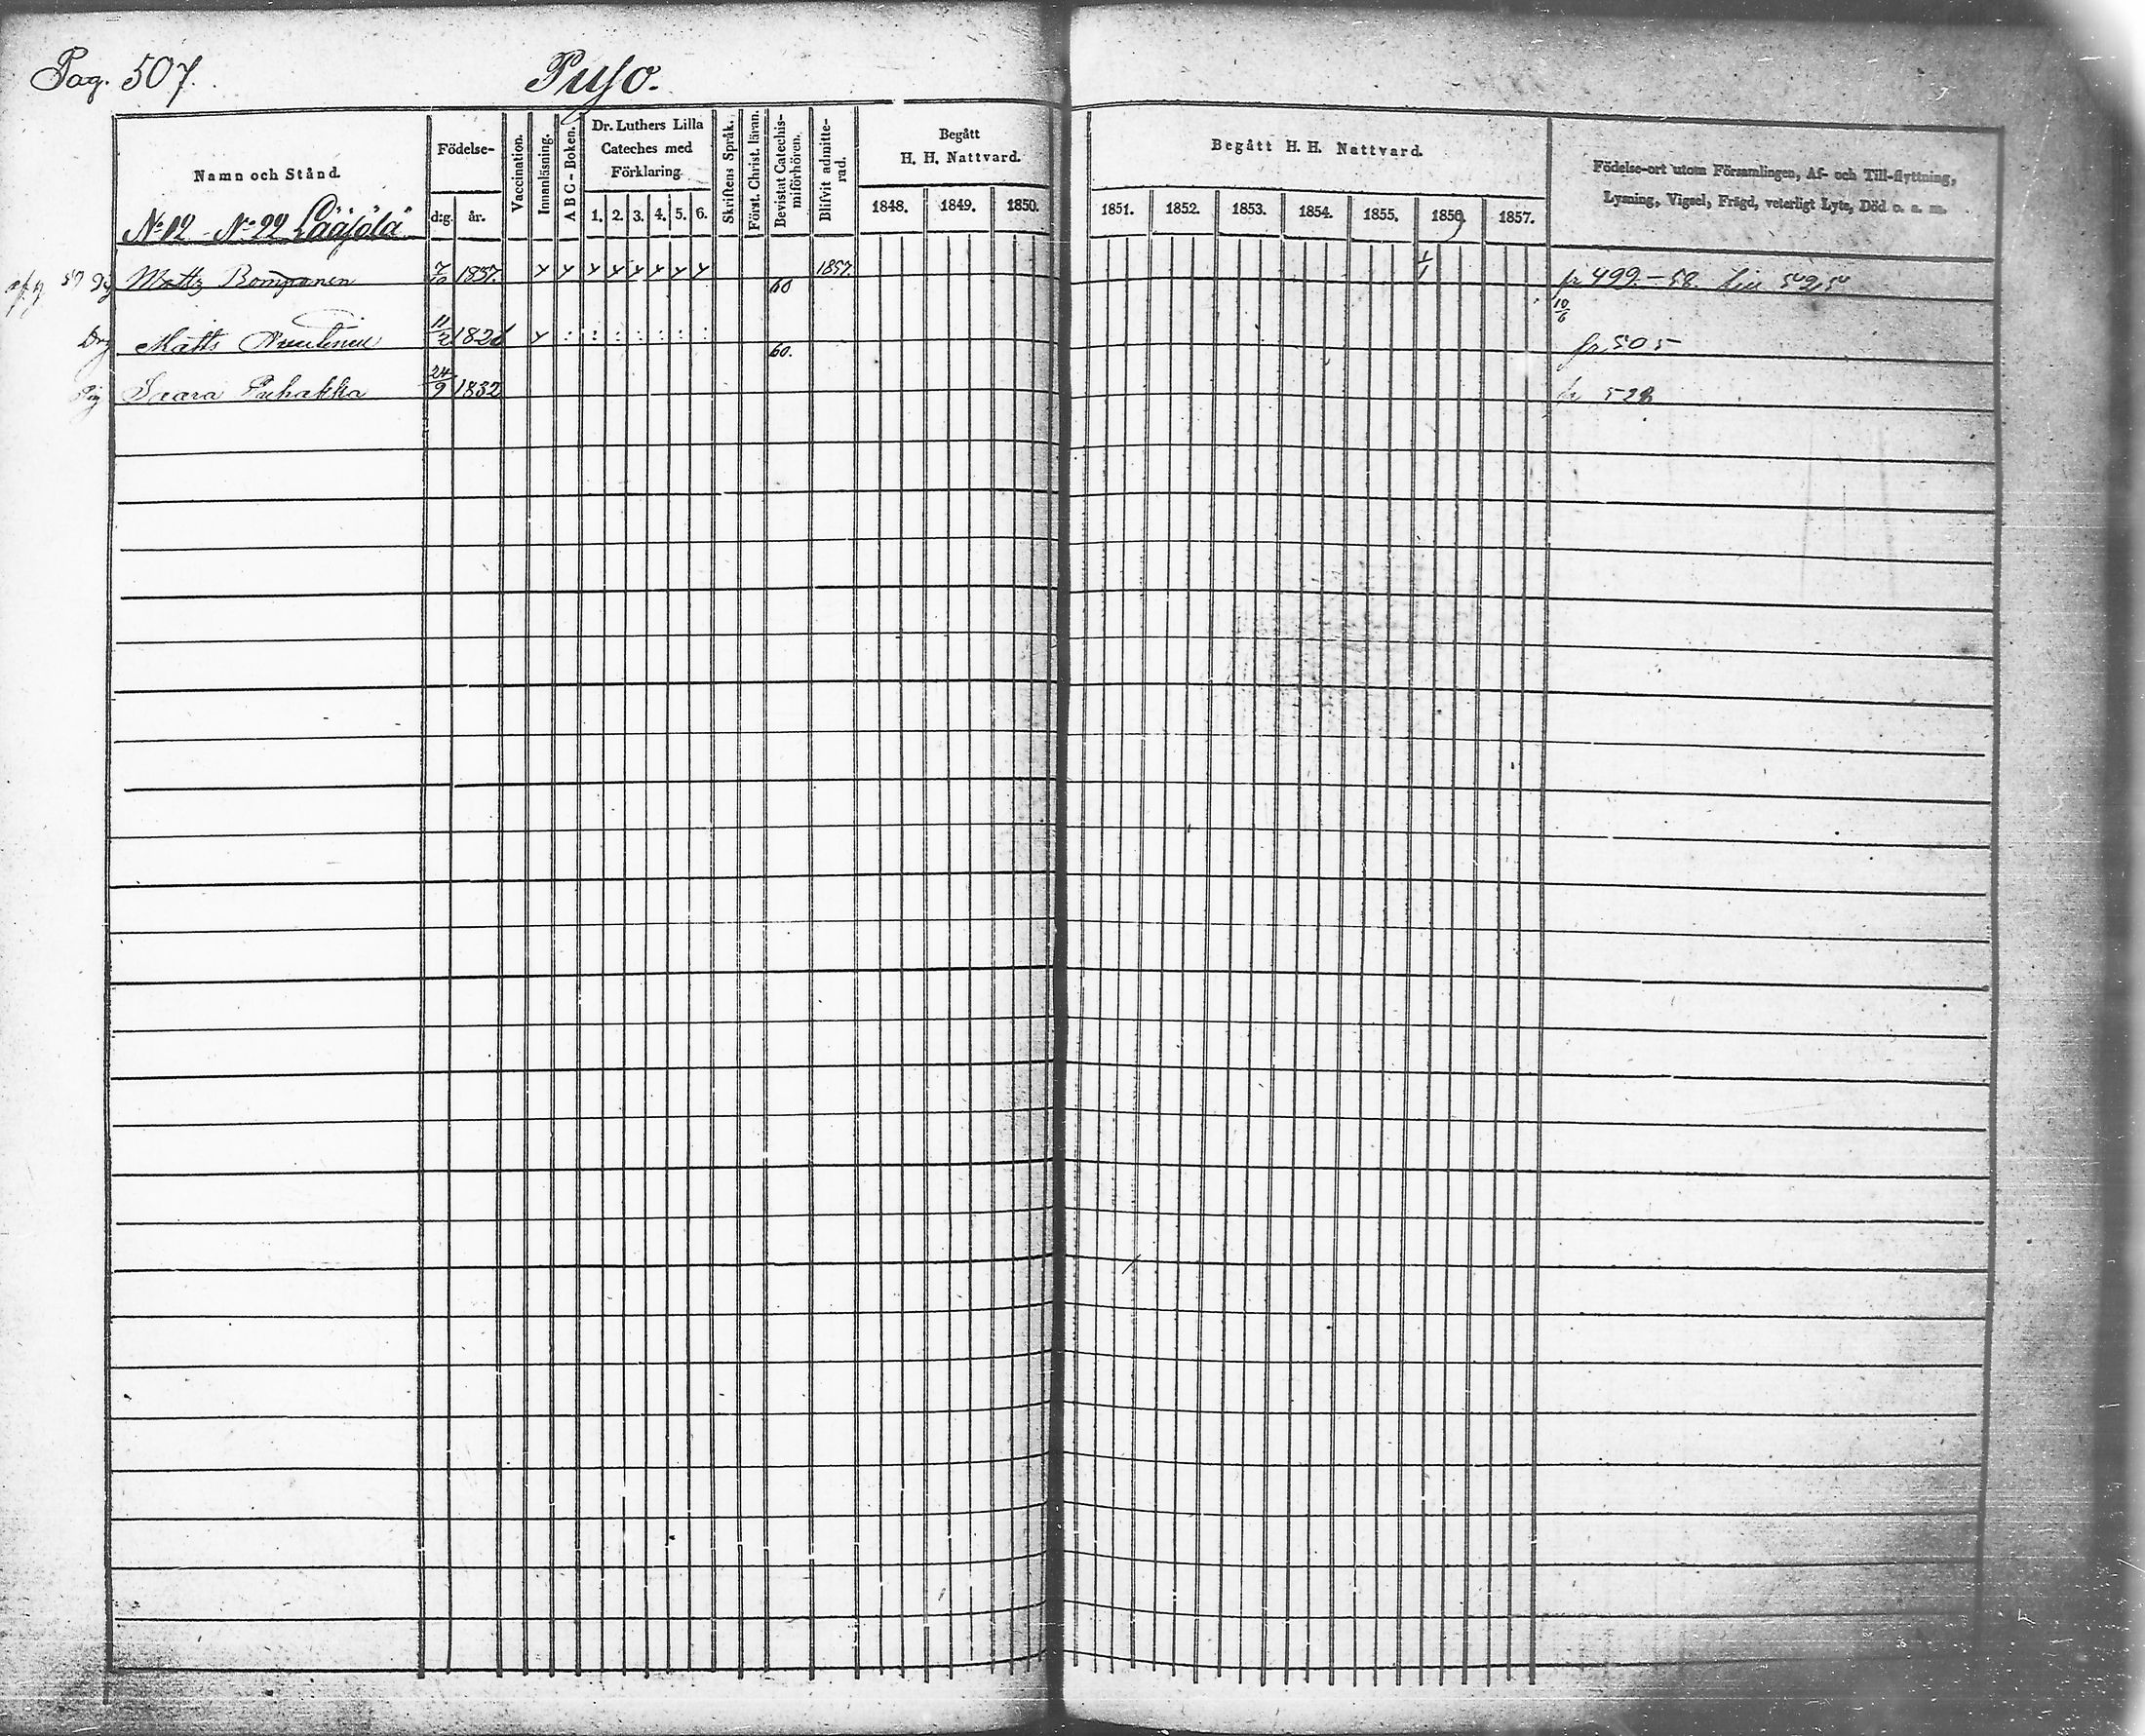 Pag. 507.
Puso.
Namn och Stånd.
Födelse-
d:g. år.
Vaccination.
Innanläsning.
A B C - Boken.
Dr. Luthers Lilla
Cateches med
Förklaring
1. 2. 3. 4. 5. 6.
Skriftens Språk.
Först. Christ. läran.
Bevistat Catechis-
miförhören.
Blifvit admitte-
rad.
Begått
H. H. Nattvard.
1848. 1849. 1850.
Begått H. H. Nattvard.
1851. 1852. 1853. 1854. 1855. 1856. 1857.
Födelse-ort utom Församlingen, Af- och Till-flyttning,
Lysning, Vigsel, Frägd, veterligt Lyte, Död o. s. m.
No 12 - No 22
Matts Romppanen 7/10 1837. 60 1857. 1/1 fr 499. - 58.
10/6
Drg Matts 11/2 60. fr. 505
Pig Saara Puhakka 24/9 1832 fr 528